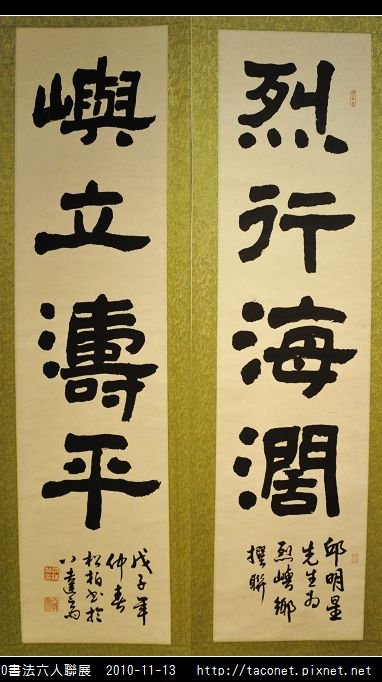 烈行海濶
邱明星
先生為
烈嶼鄉
撰聯
嶼立濤平
戊子年
仲春
松柏書於
八達齋
0書法六人聯展 2010-11-13 http://taconet.pixnet.net